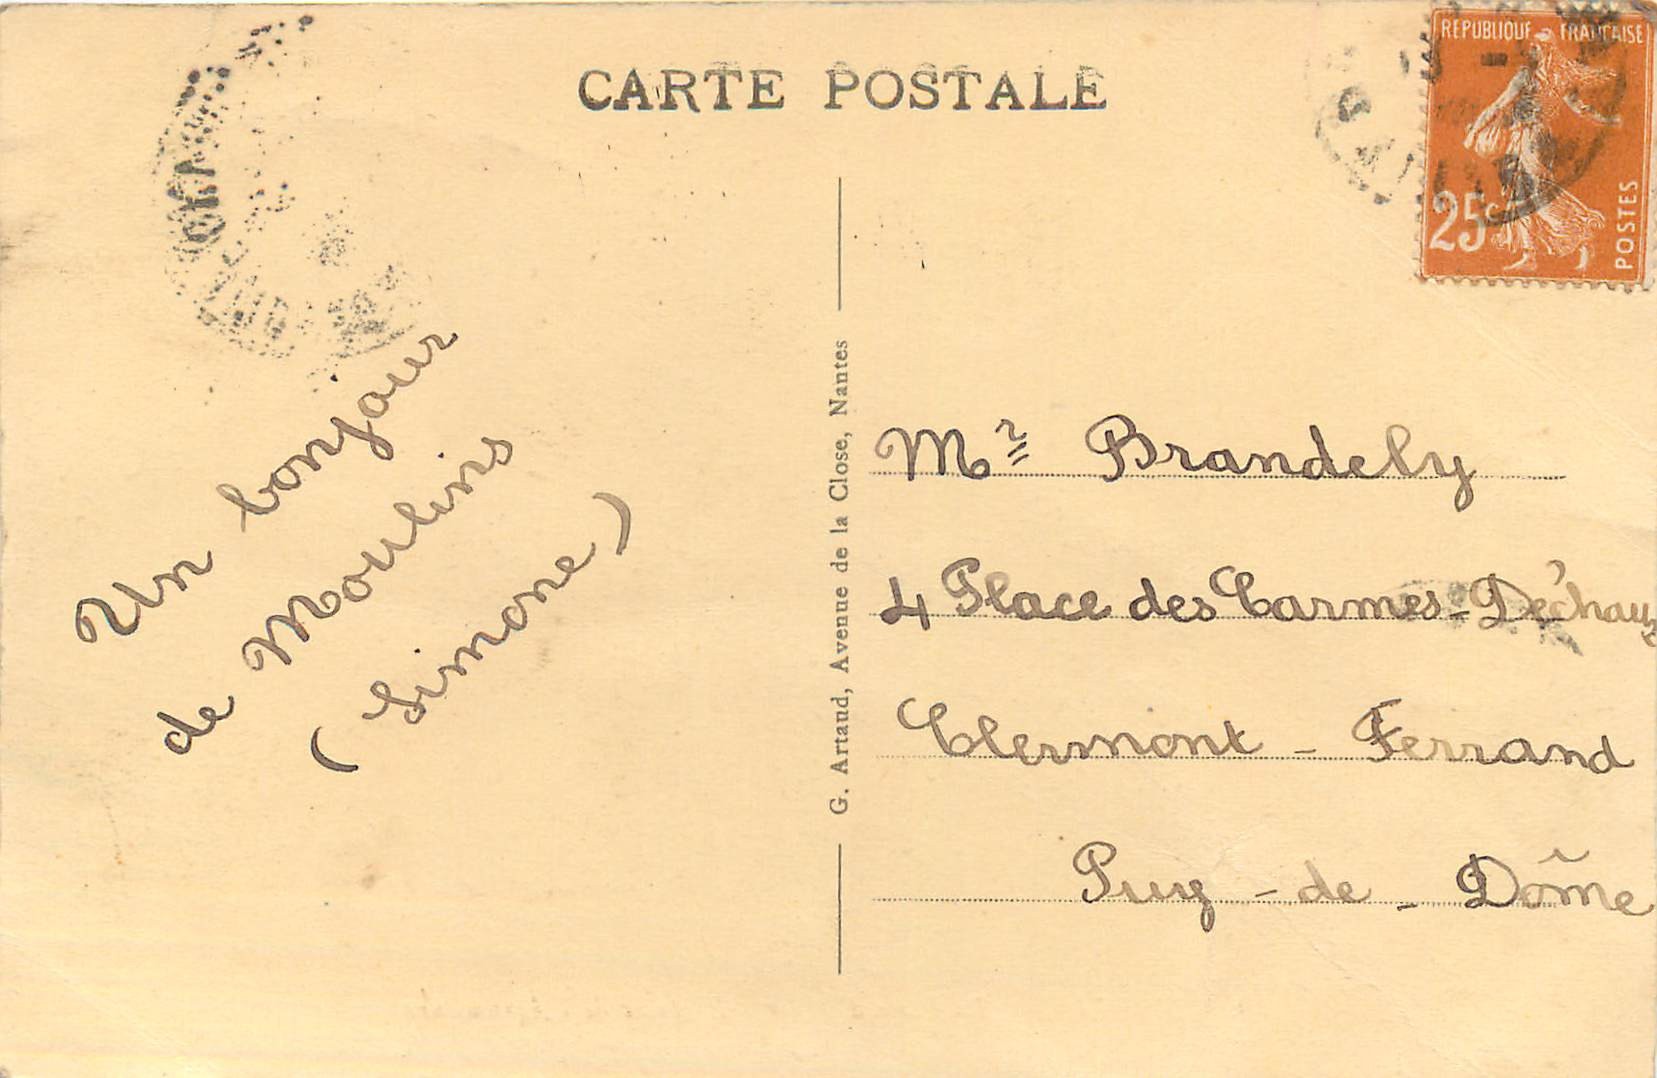 CARTE POSTALE
REPUBLIQUE FRANCAISE
25c
POSTES
Un bonjour
de Moulins
(Simone)
G. Artaud, Avenue de la Close, Nantes
Mr Brandely
4 Place des Carmes-Déchaux
Clermont - Ferrand
Puy - de - Dôme